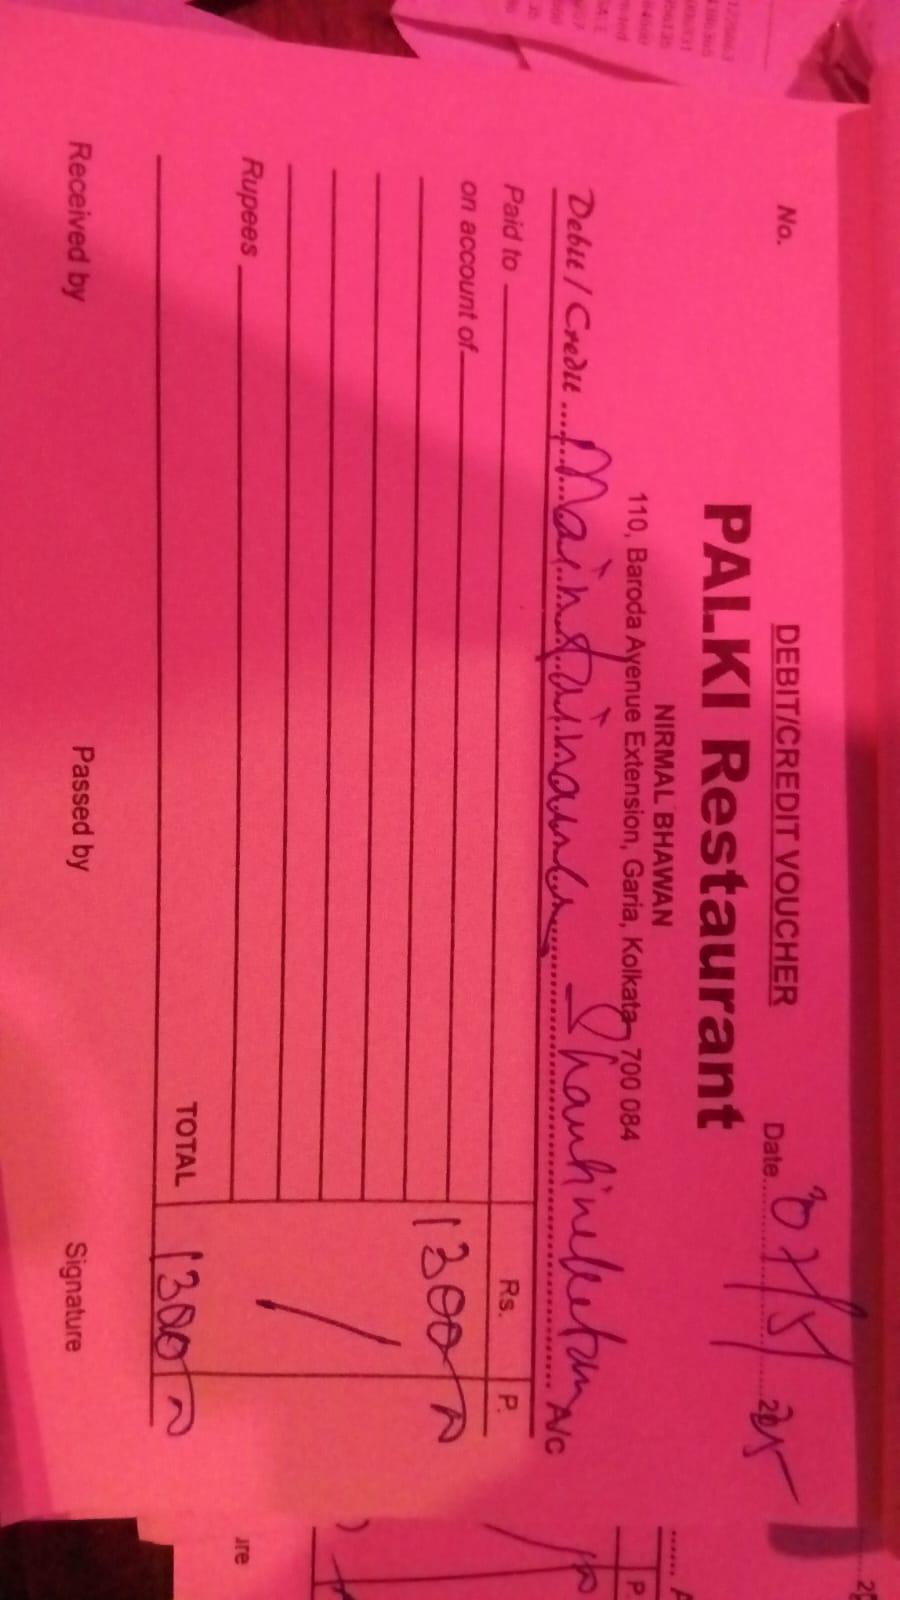 DEBIT/CREDIT VOUCHER
No.
Date
PALKI Restaurant
NIRMAL BHAWAN
110, Baroda Avenue Extension, Garia, Kolkata 700 084
Debit / Credit Maintainance Shantiniketan A/C
Paid to Rs. P.
on account of 1300
Rupees
TOTAL 1300
Received by Passed by Signature